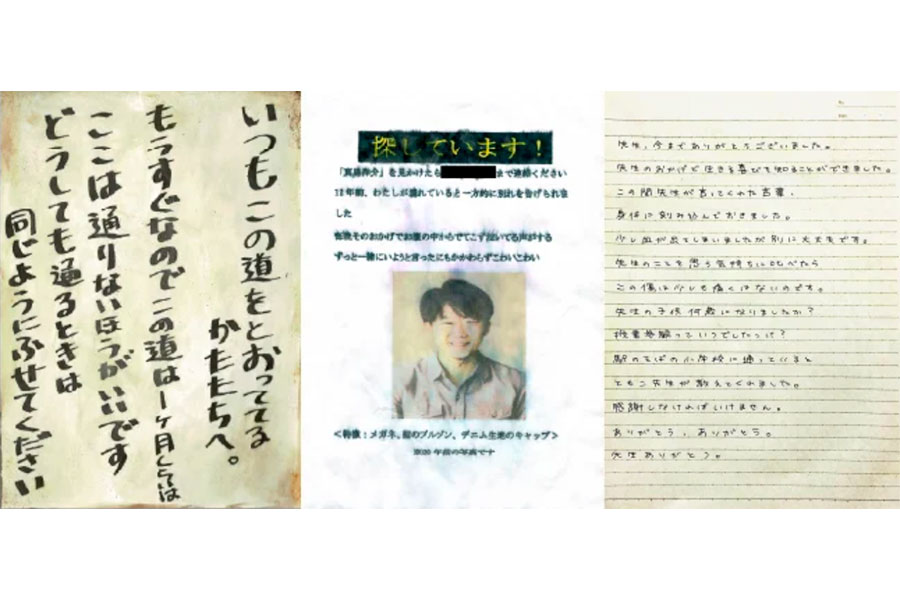 いつもこの道をとおってる
かたたちへ。
もうすぐなのでこの道は一ヶ月しては
ここは通りないほうがいいです
どうしても通るときは
同じようにふせてください
探しています！
を見かけたら まで連絡ください
12年前、わたしが濡れていると一方的に別れを告げられま
した
そのおかげでお腹の中からでてこず泣いてる声がする
ずっと一緒にいようと言ったにもかかわらずこわいこわい
＜特徴：メガネ、紺のブルゾン、デニム生地のキャップ＞
2020年前の写真です
先生、今までありがとうございました。
先生のおかげで生きる喜びを知ることができました。
この間先生が言ってくれた言葉、
身体に刻み込んでおきました。
少し血が出てしまいましたが別に大丈夫です。
先生のことを思う気持ちに比べたら
この傷は少しも痛くはないのです。
先生の子供何歳になりましたか？
授業参観っていつでしたっけ？
駅のそばの小学校に通っていると
ともこ先生が教えてくれました。
感謝しなければいけません。
ありがとう、ありがとう。
先生ありがとう。